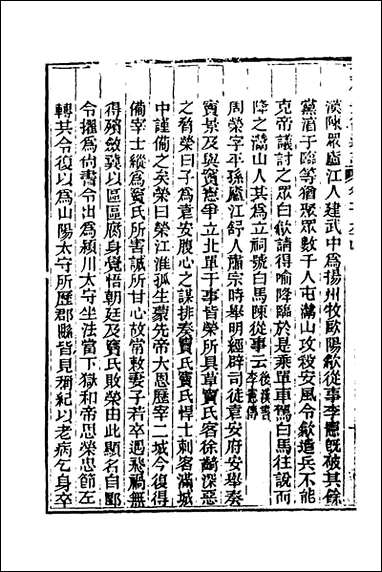 漢陳眾廬江人建武中為揚州牧歐陽歙從事李憲既破其餘
黨淳于臨等猶聚眾數千人屯灊山攻殺安風令歙遣兵不能
克帝議討之眾白歙請得喻降臨於是乘單車駕白馬往說而
降之灊山人共為立祠號白馬陳從事云後漢書李憲傳
周榮字平孫廬江舒人肅宗時舉明經辟司徒袁安府安舉奏
竇景及與竇憲爭立北單于事皆榮所具草竇氏客徐齮深惡
之脅榮曰子為袁安腹心之謀排奏竇氏竇氏悍士刺客滿城
中謹備之矣榮曰榮江淮孤生蒙先帝大恩歷宰二城今復得
備宰士縱為竇氏所害誠所甘心故常敕妻子若卒遇飛禍無
得殯斂冀以區區腐身覺悟朝廷及竇氏敗榮由此顯名自郾
令擢為尚書令出為潁川太守坐法當下獄和帝思榮忠節左
轉共令復以為山陽太守所歷郡縣皆見稱紀以老病乞身卒